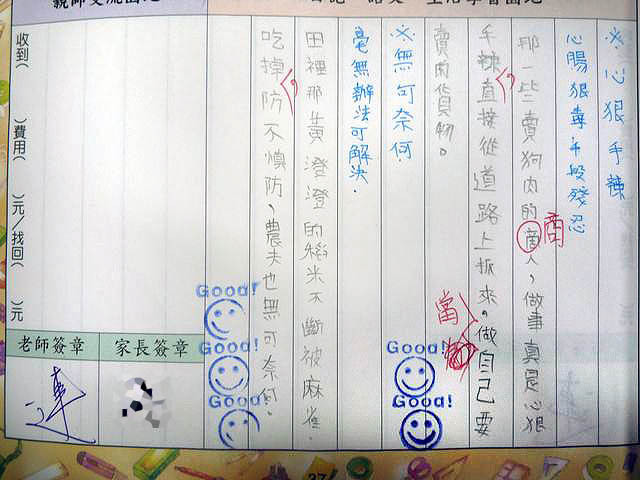 ※心狠手辣
心腸狠毒手段殘忍
那一些賣狗肉的商人，做事真是心狠
商
手辣直接從道路上抓來。做自己要
當
賣的貨物。
※無可奈何
毫無辦法可解決．
田裡那黃澄澄的稻米不斷被麻雀．
吃掉防不慎防、農夫也無可奈何．
Good!
Good!
Good!
Good!
Good!
收到(　　)費用(　　)元／找回(　　)元
老師簽章
家長簽章
27